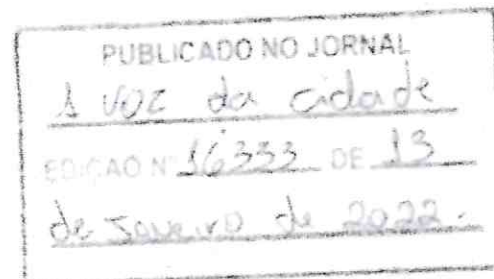 PUBLICADO NO JORNAL
A VOZ da cidade
EDIÇÃO Nº 16333 DE 13
de Janeiro de 2022.